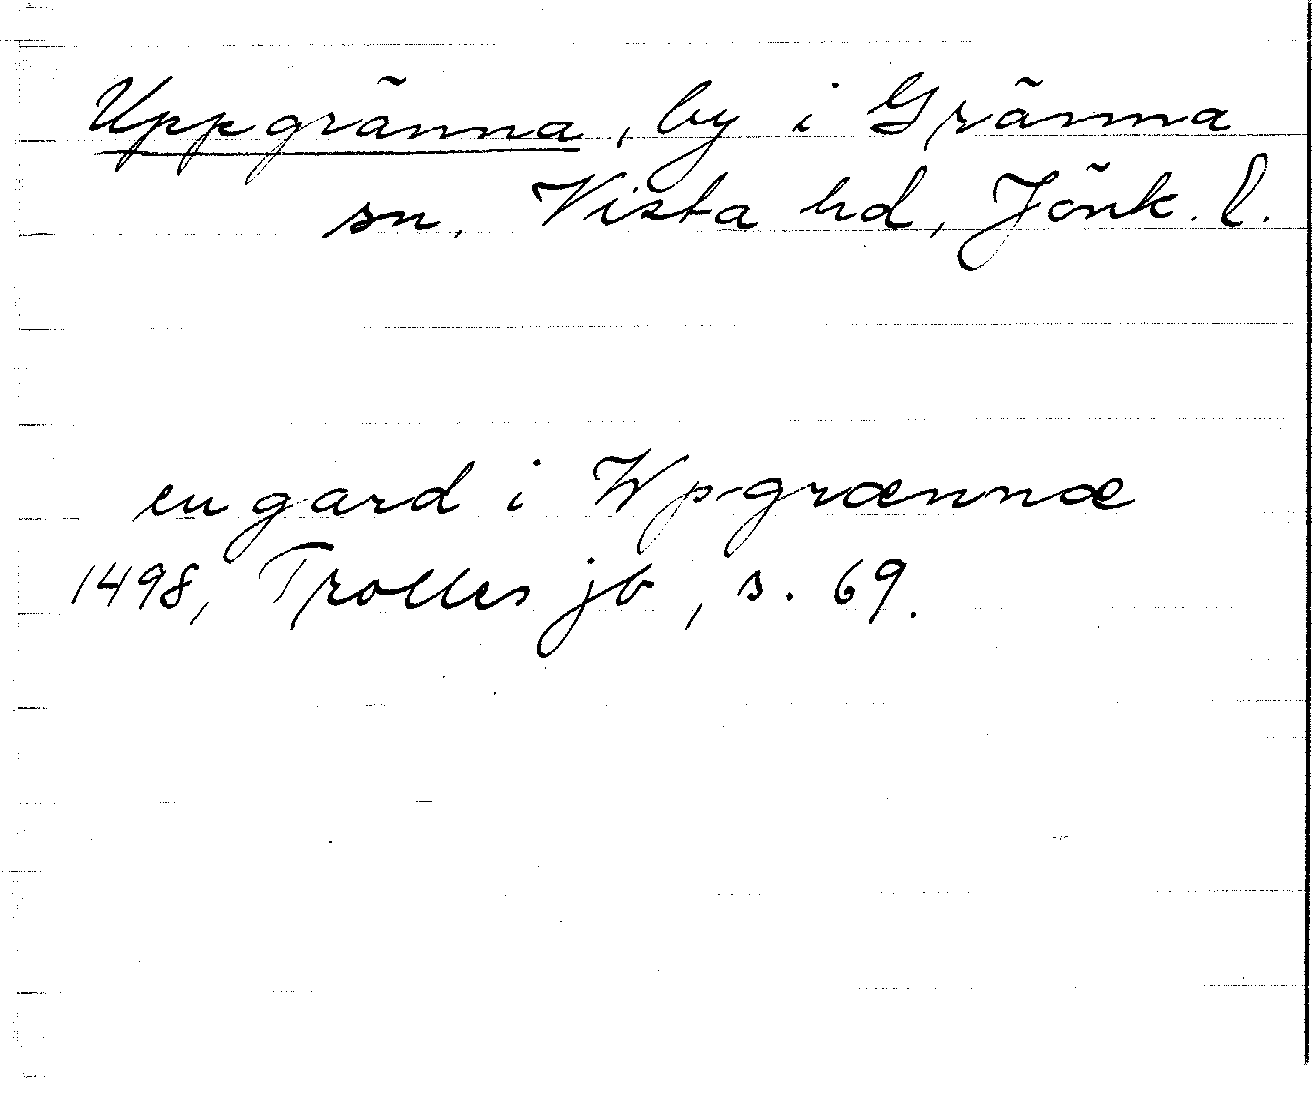 Uppgränna, by i Gränna
sn, Vista hd, Jönk. l.
en gard i Wp-grænnæ
1498, Trolles jb, s. 69.